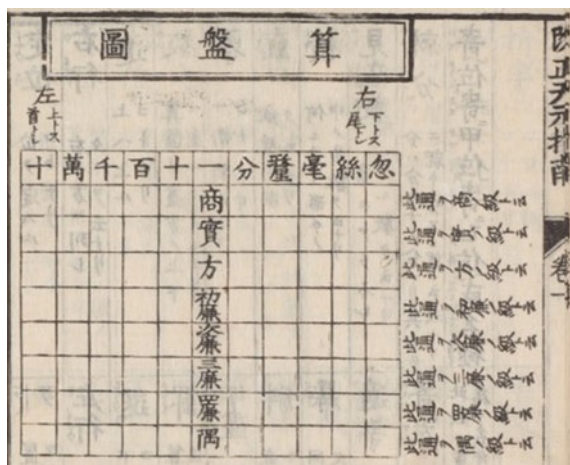 改正天元指南
卷一
算盤圖
右
下トス
尾トシ
左
上トス
首トシ
忽絲毫釐分一十百千萬十
商
實
方
初廉
次廉
三廉
四廉
隅
此通ヲ商ノ級ト云
此通ヲ實ノ級ト云
此通ヲ方ノ級ト云
此通ヲ初廉ノ級ト云
此通ヲ次廉ノ級ト云
此通ヲ三廉ノ級ト云
此通ヲ四廉ノ級ト云
此通ヲ隅ノ級ト云